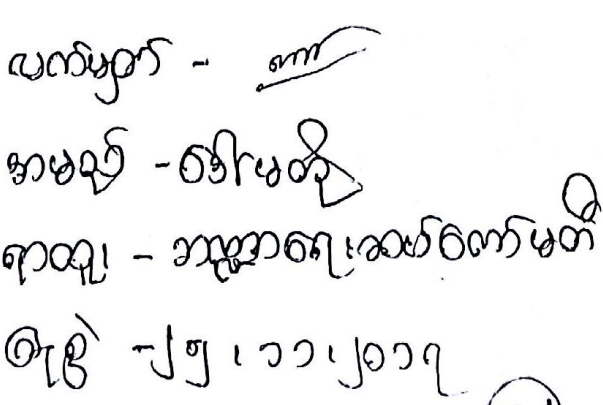 လက်မှတ် -
အမည် - ဒေါ်မတို့
ရာထူး - ဘဏ္ဍာရေးဆပ်ကော်မတီ
ရက်စွဲ - ၂၅၊၁၁၊၂၀၁၇